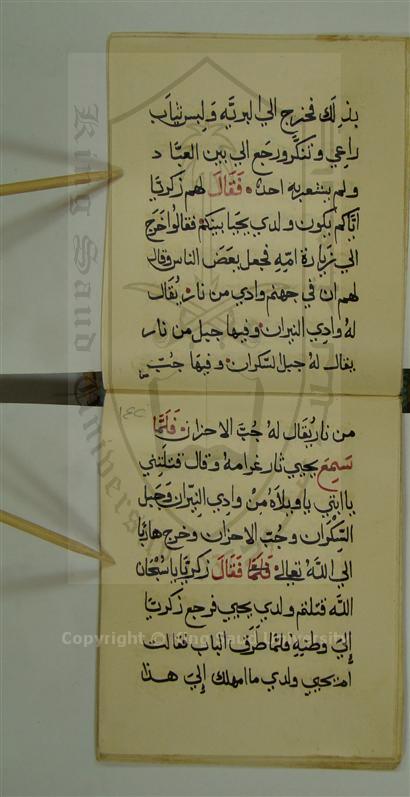 بذلك فخرج الي البريه ولبس ثياب
راعي وتنكر ورجع الي بين العباد
ولم يشعر به احد فَقَالَ لهم زكريا
ايّاكم يكون ولدي يحيا بينكم فقالوا خرج
الي زيارة امّه فجعل بعض الناس وقال
لهم ان في جهنم وادي من نار يُقَال
له وادي النيران وفيها جبل من نار
يقال له جبل السّكران وفيها جبّ
من نار يُقَال له جُبّ الاحزان فَلَمَّا
سَمِعَ يحيي ثار غرامه وقال قتلتني
يا ابتي يا ويلاه من وادي النّيران وجبل
السّكران وجُبّ الاحزان وخرج هاربا
الي اللّه تعالي فَقَالَ زكريّا يا سبحان
اللّه قتلتم ولدي يحيي فرجع زكريّا
إلي وطنه فلمّا طرق الباب فقالت
ام يحيي ولدي ما امهلك إليّ هذا
Copyright © King Saud University
King Saud University